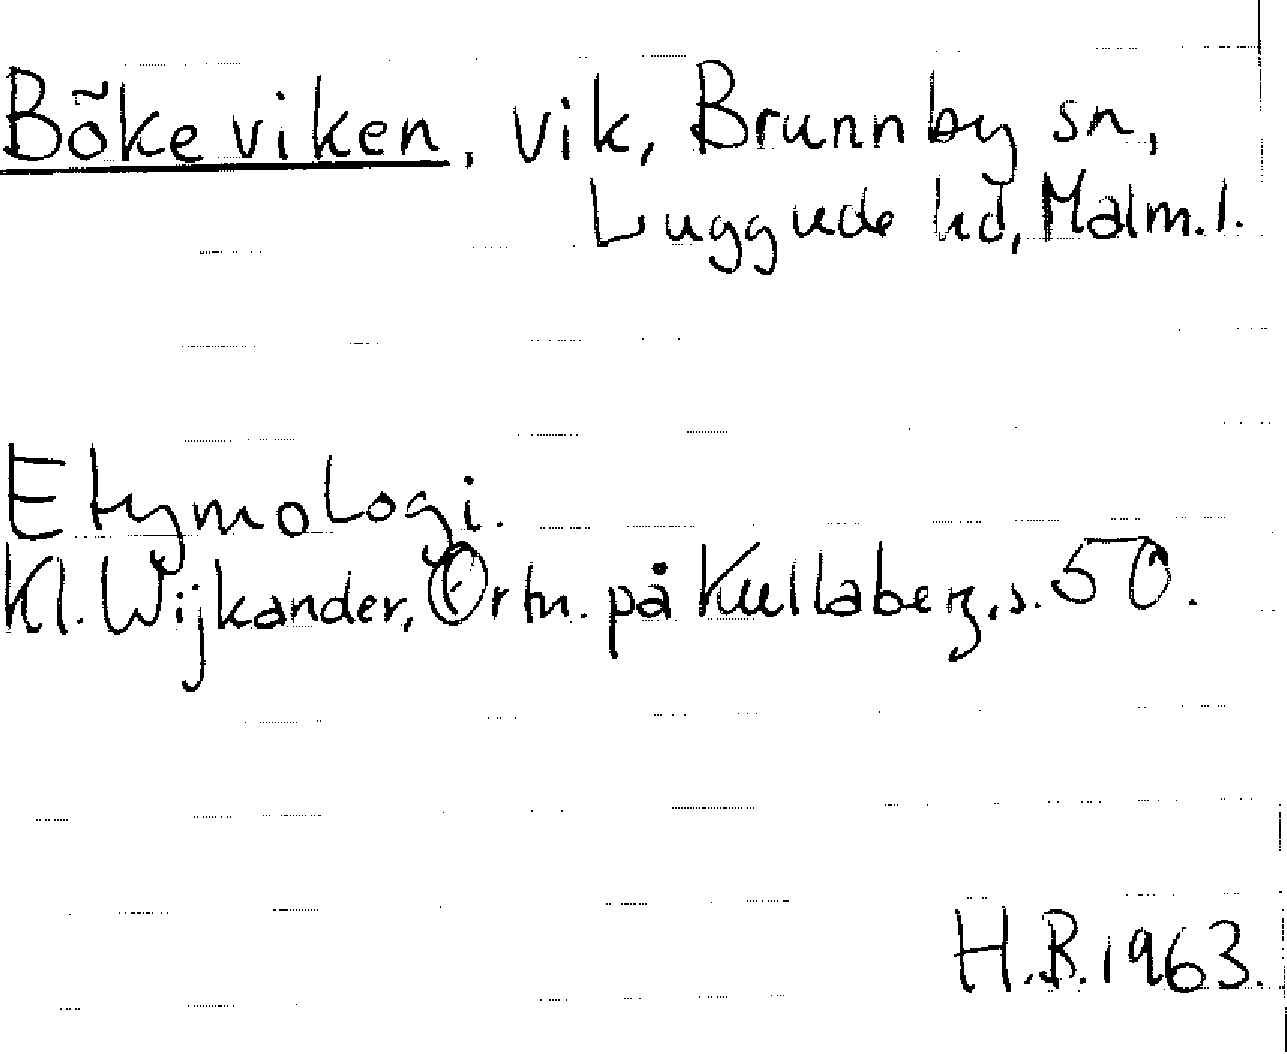 Bökeviken, vik, Brunnby sn,
Luggude hd, Malm. l.
Etymologi.
Kl. Wijkander, Ortn. på Kullaberg, s. 50.
H.B. 1963.